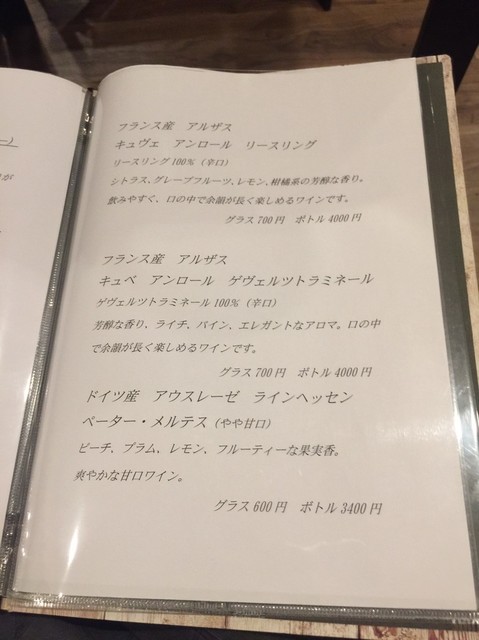 フランス産 アルザス
キュヴェ アンロール リースリング
リースリング100%(辛口)
シトラス、グレープフルーツ、レモン、柑橘系の芳醇な香り。
飲みやすく、口の中で余韻が長く楽しめるワインです。
グラス700円 ボトル4000円
フランス産 アルザス
キュベ アンロール ゲヴェルツトラミネール
ゲヴェルツトラミネール100%(辛口)
芳醇な香り、ライチ、パイン、エレガントなアロマ。口の中
で余韻が長く楽しめるワインです。
グラス700円 ボトル4000円
ドイツ産 アウスレーゼ ラインヘッセン
ペーター・メルテス(やや甘口)
ピーチ、プラム、レモン、フルーティーな果実香。
爽やかな甘口ワイン。
グラス600円 ボトル3400円